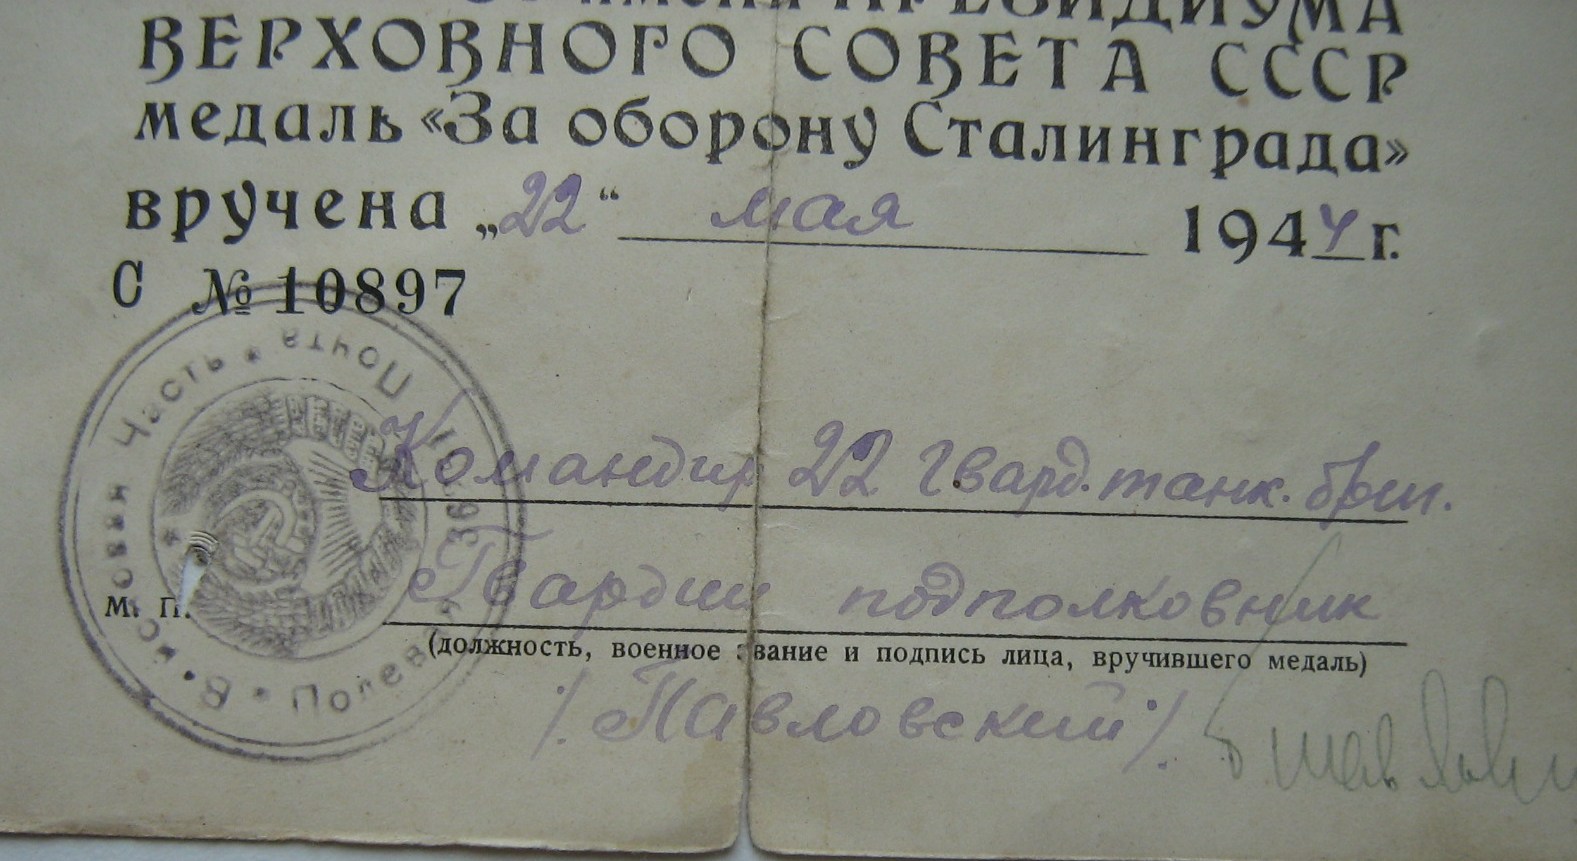 От имени ПРЕЗИДИУМА
ВЕРХОВНОГО СОВЕТА СССР
медаль «За оборону Сталинграда»
вручена „22“ мая 1944 г.
С № 10897
Войсковая Часть * Полевая Почта
Командир 22 Гвард. танк. бриг.
Гвардии подполковник
М. П.
(должность, военное звание и подпись лица, вручившего медаль)
/. Павловский ./.